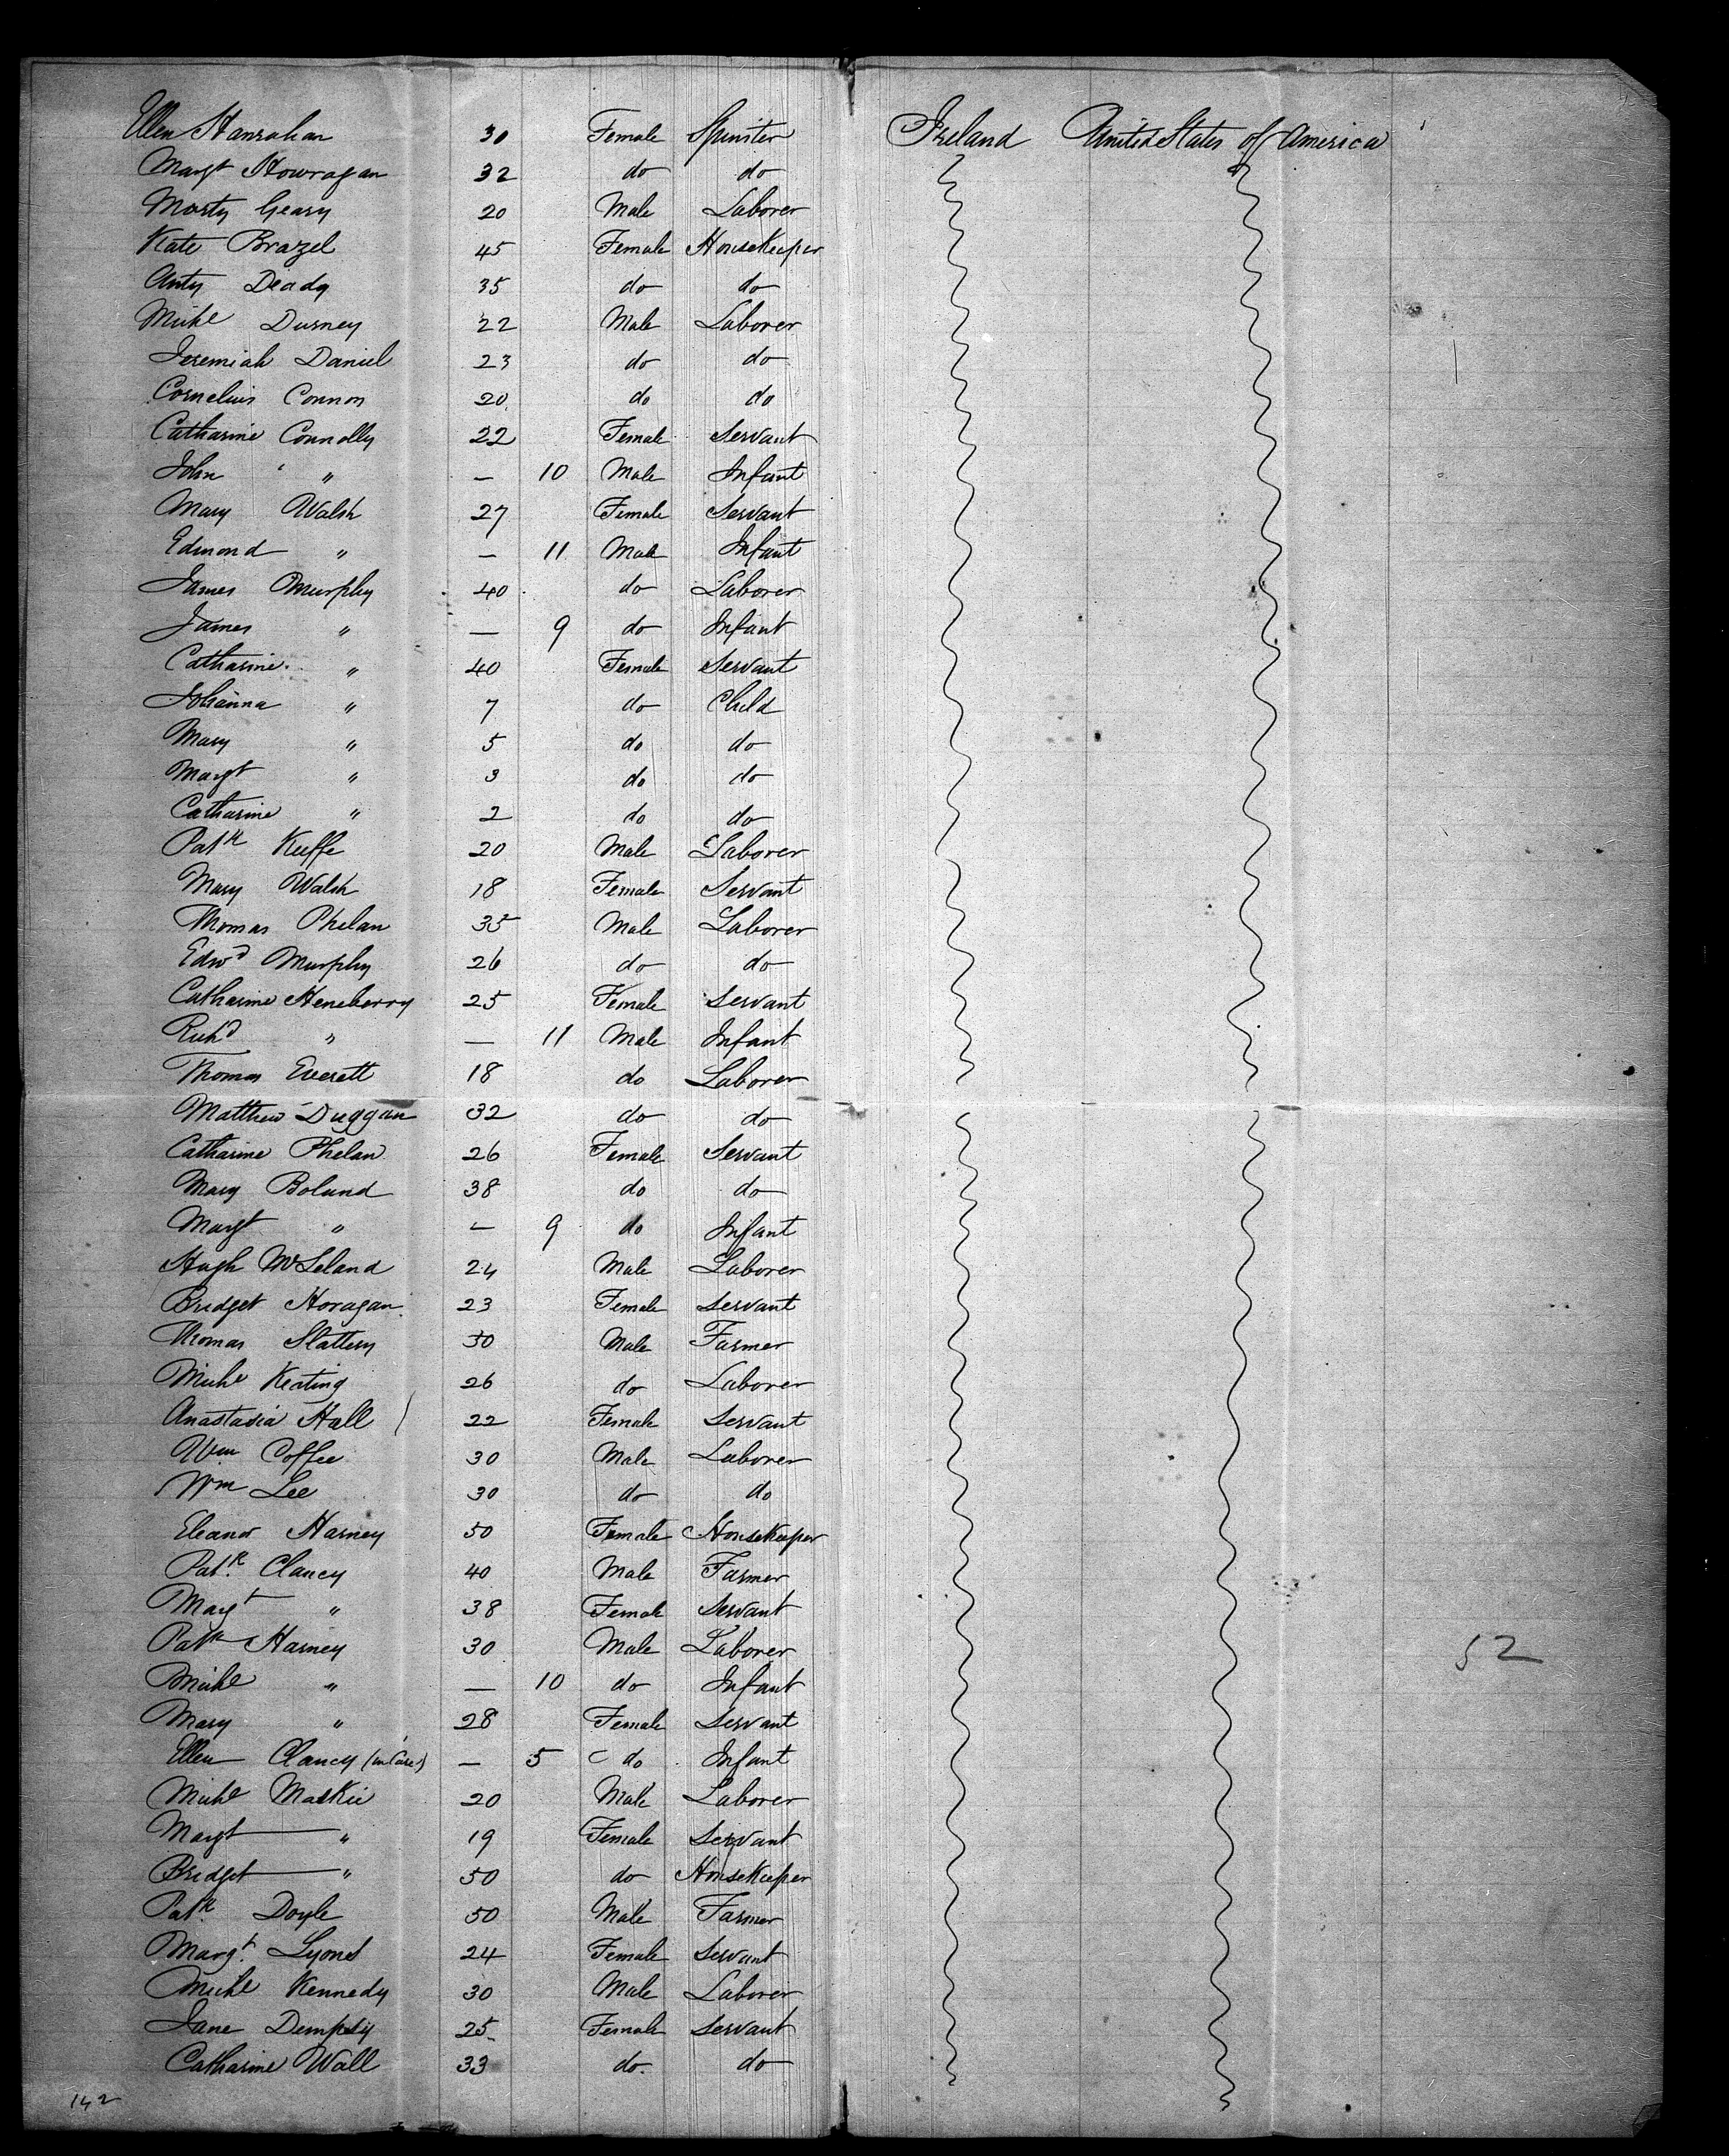 Ellen Hanrahan 30 Female Spinster Ireland United States of America
Margt Howragan 32 do do
Morty Geary 20 Male Laborer
Kate Brazel 45 Female Housekeeper
Anty Deady 35 do do
Michl Durney 22 Male Laborer
Jeremiah Daniel 23 do do
Cornelius Connon 20 do do
Catharine Connolly 22 Female Servant
John " — 10 Male Infant
Mary Walsh 27 Female Servant
Edmond " — 11 Male Infant
James Murphy 40 do Laborer
James " — 9 do Infant
Catharine " 40 Female Servant
Johanna " 7 do Child
Mary " 5 do do
Margt " 3 do do
Catharine " 2 do do
Patk Keffe 20 Male Laborer
Mary Walsh 18 Female Servant
Thomas Phelan 35 Male Laborer
Edwd Murphy 26 do do
Catharine Heneberry 25 Female Servant
Richd " — 11 Male Infant
Thomas Everett 18 do Laborer
Matthew Duggan 32 do do
Catharine Phelan 26 Female Servant
Mary Boland 38 do do
Margt " — 9 do Infant
Hugh McLeland 24 Male Laborer
Bridget Horagan 23 Female Servant
Thomas Slattery 30 Male Farmer
Michl Keating 26 do Laborer
Anastasia Hall 22 Female Servant
Wm Coffee 30 Male Laborer
Wm Lee 30 do do
Eleanor Harney 50 Female Housekeeper
Patk Clancy 40 Male Farmer
Margt " 38 Female Servant
Patk Harney 30 Male Laborer 52
Michl " — 10 do Infant
Mary " 28 Female Servant
Ellen Clancy — 5 do Infant
Michl Maskie 20 Male Laborer
Margt " 19 Female Servant
Bridget " 50 do Housekeeper
Patk Doyle 50 Male Farmer
Margt Lyons 24 Female Servant
Michl Kennedy 30 Male Laborer
Jane Dempsey 25 Female Servant
Catharine Wall 33 do do
142